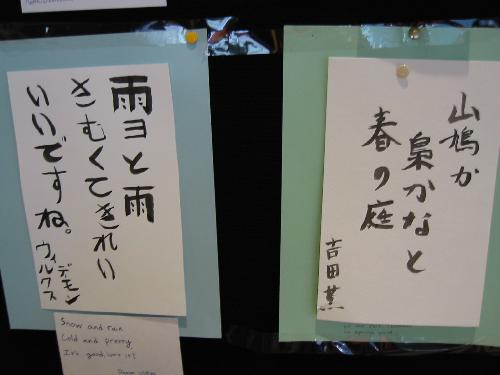 雨ヨと雨
さむくてきれい
いいですね。
ウィルクス
デモン
Snow and rain
Cold and pretty
It's good, isn't it?
山鳩か
梟かなと
春の庭
吉田薫